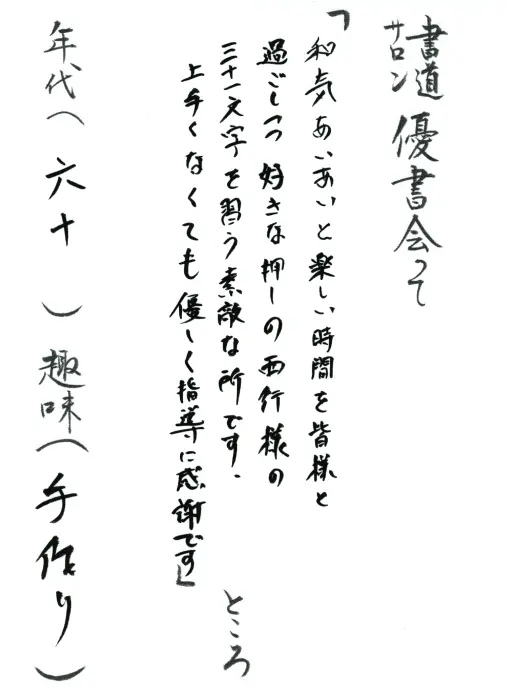 書道サロン 優書会って
「和気あいあいと楽しい時間を皆様と
過ごしつつ好きな押しの西行様の
三十一文字を習う素敵な所です.
上手くなくても優しく指導に感謝です」
ところ
年代(六十)趣味(手作り)